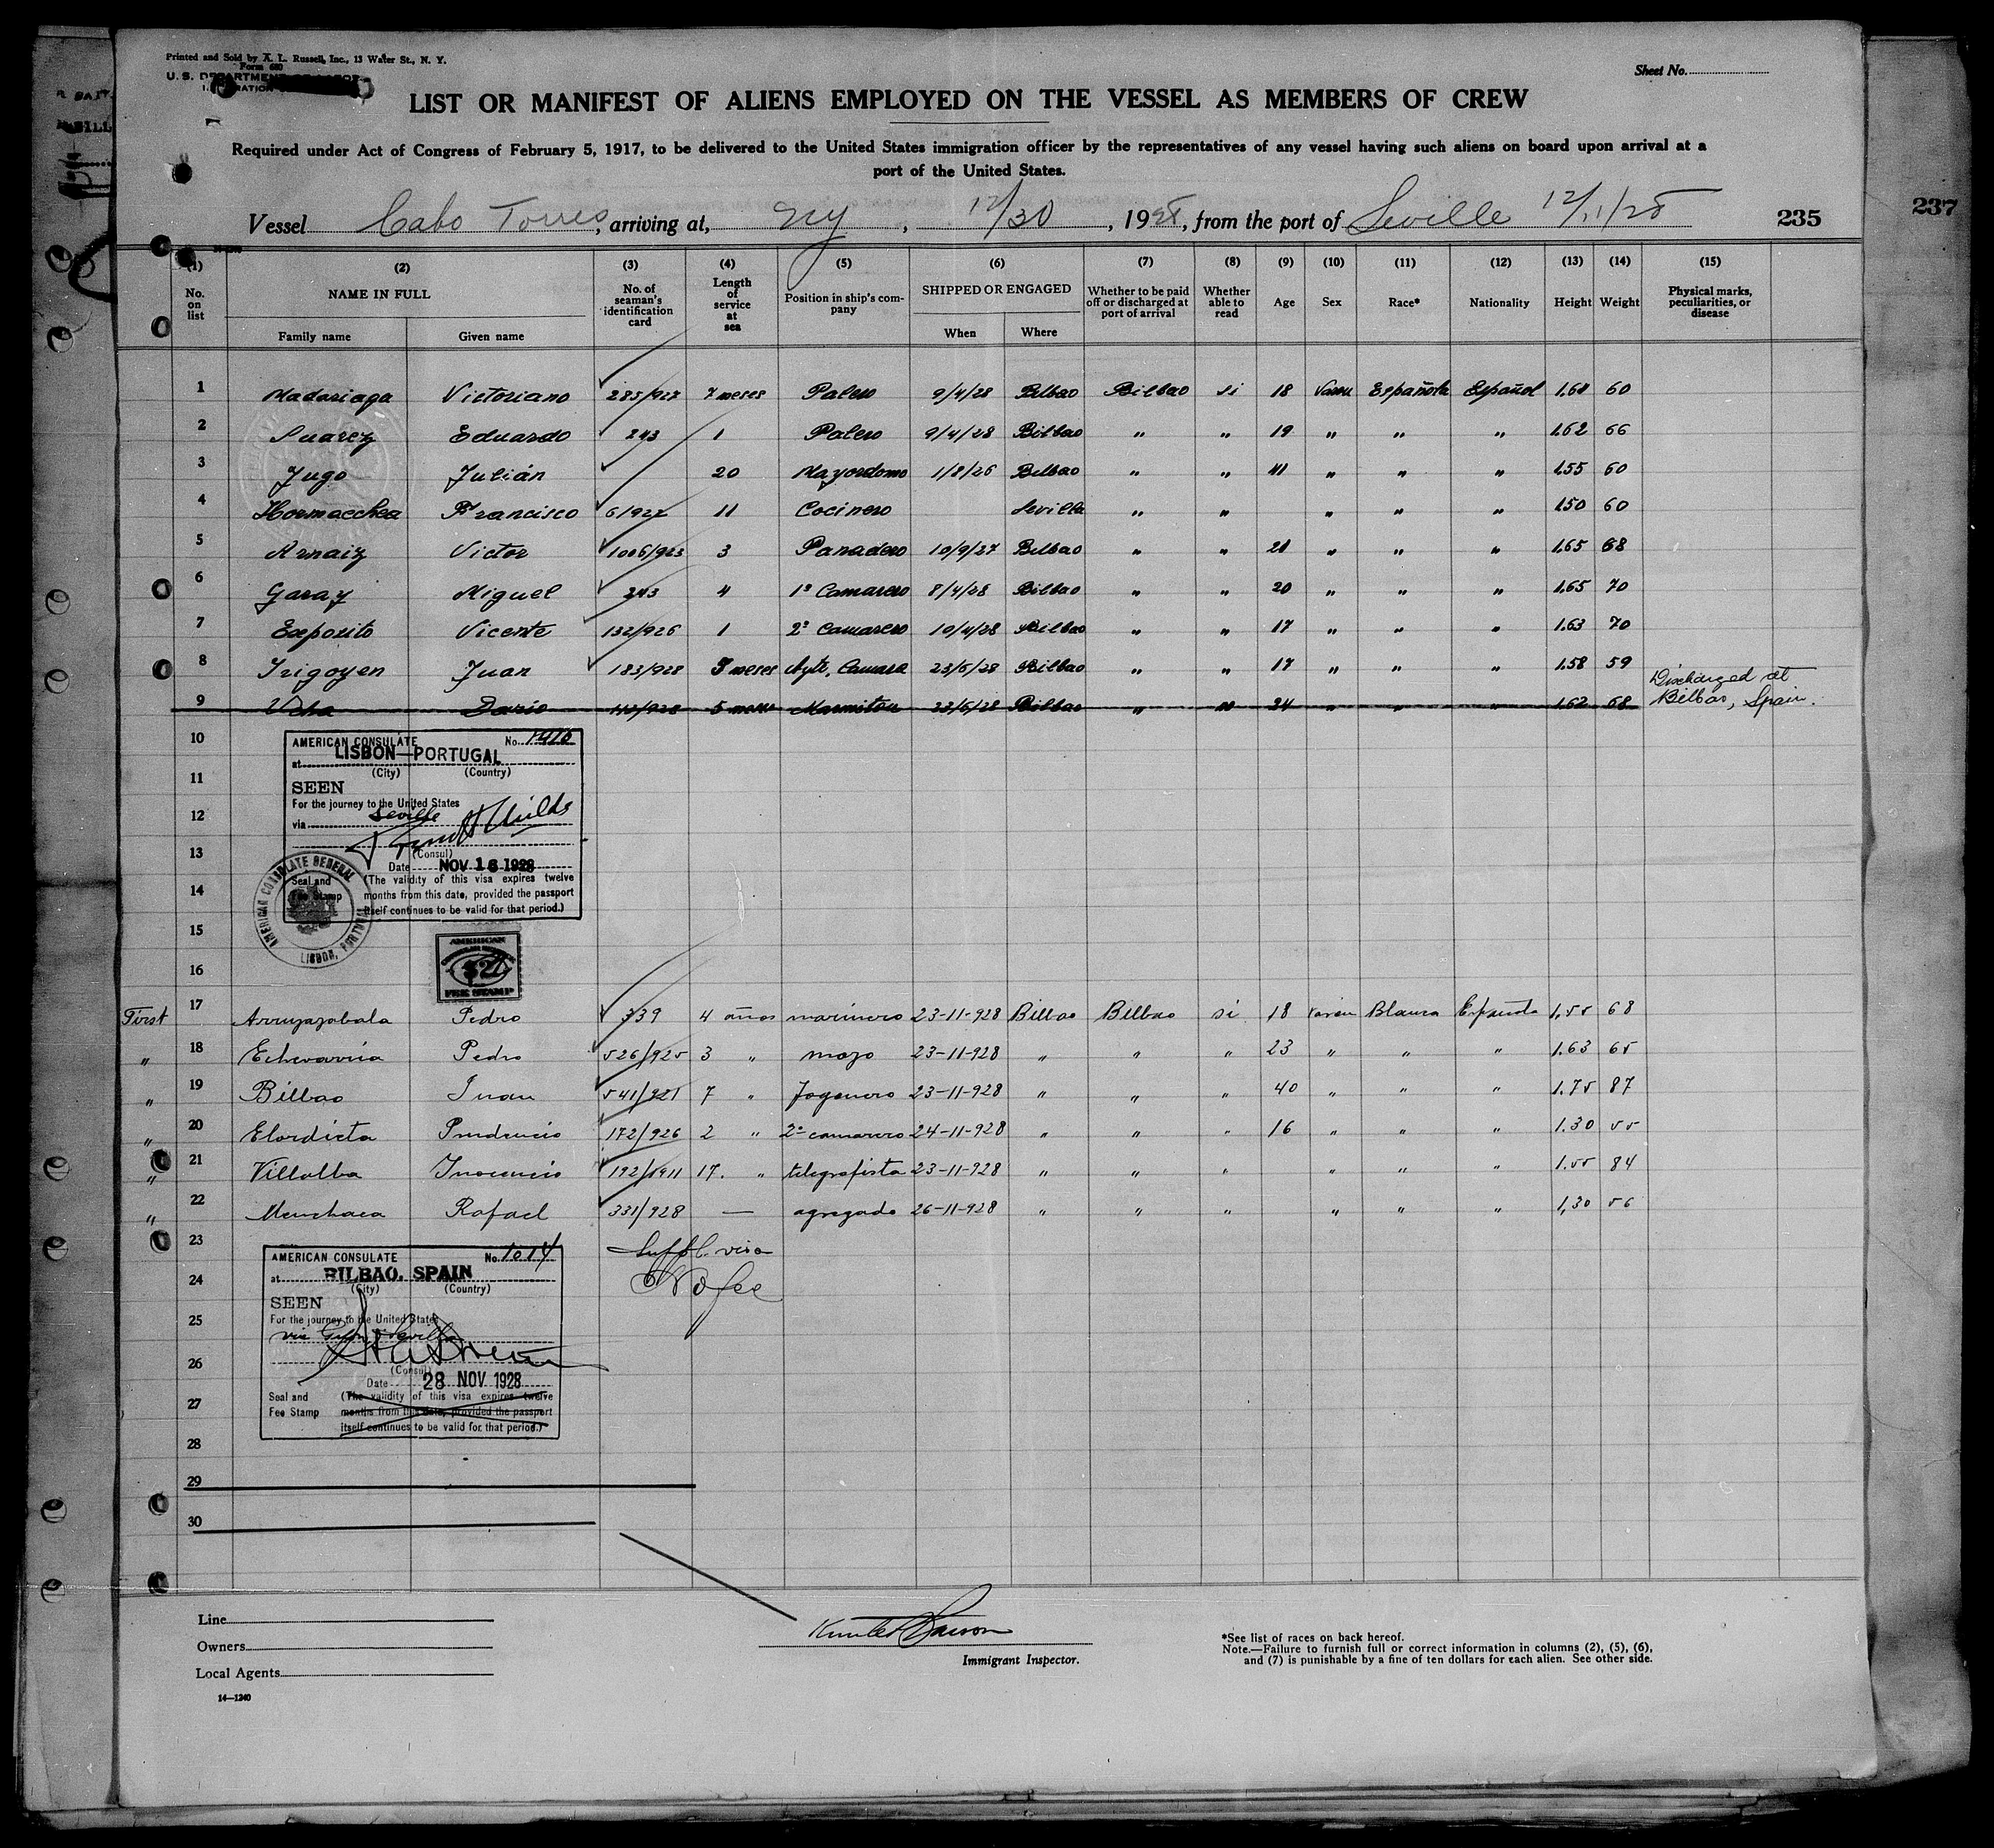 Printed and Sold by A. L. Russell, Inc., 13 Water St., N. Y.
Form 680
U. S. DEPARTMENT OF LABOR
Sheet No.
LIST OR MANIFEST OF ALIENS EMPLOYED ON THE VESSEL AS MEMBERS OF CREW
Required under Act of Congress of February 5, 1917, to be delivered to the United States immigration officer by the representatives of any vessel having such aliens on board upon arrival at a
port of the United States.
Vessel Cabo Torres, arriving at, NY, 12/30, 1928, from the port of Seville 12/11/28 235
237
(1) (2) (3) (4) (5) (6) (7) (8) (9) (10) (11) (12) (13) (14) (15)
No. on list NAME IN FULL No. of seaman's identification card Length of service at sea Position in ship's company SHIPPED OR ENGAGED Whether to be paid off or discharged at port of arrival Whether able to read Age Sex Race* Nationality Height Weight Physical marks, peculiarities, or disease
Family name Given name When Where
1 Madariaga Victoriano 285/927 7 meses Palero 9/4/28 Bilbao Bilbao si 18 Varon Española Español 1,60 60
2 Suarez Eduardo 243 1 Palero 9/4/28 Bilbao " " 19 " " " 1,62 66
3 Jugo Julián 20 Mayordomo 1/8/26 Bilbao " " 41 " " " 1,55 60
4 Hormaechea Francisco 6/927 11 Cocinero Sevilla " " " " " 1,50 60
5 Arnaiz Victor 1006/923 3 Panadero 10/9/27 Bilbao " " 21 " " " 1,65 68
6 Garay Miguel 243 4 1º Camarero 8/4/28 Bilbao " " 20 " " " 1,65 70
7 Exposito Vicente 132/926 1 2º Camarero 10/4/28 Bilbao " " 17 " " " 1,63 70
8 Irigoyen Juan 183/928 5 meses Ayte. Camara 23/6/28 Bilbao " " 17 " " " 1,58 59
Discharged at
9 Dario 5 meses Marmiton 23/6/28 Bilbao " " 24 " " " 1,62 68 Bilbao, Spain.
10
11
12
13
14
15
16
AMERICAN CONSULATE No. 1416
at LISBON—PORTUGAL
(City) (Country)
SEEN
For the journey to the United States
via Seville
(Consul)
Date NOV 16 1928
Seal and Fee Stamp
(The validity of this visa expires twelve
months from this date, provided the passport
itself continues to be valid for that period.)
AMERICAN CONSULATE GENERAL
LISBON, PORTUGAL
AMERICAN
FEE STAMP
First 17 Arruzazabala Pedro 339 4 años marinero 23-11-928 Bilbao Bilbao si 18 varon Blanca Española 1,55 68
" 18 Echevarria Pedro 526/925 3 " mozo 23-11-928 " " " 23 " " " 1.63 65
" 19 Bilbao Juan 541/921 7 " Fogonero 23-11-928 " " " 40 " " " 1.75 87
" 20 Elordieta Prudencio 172/926 2 " 2º camarero 24-11-928 " " " 16 " " " 1.30 55
" 21 Villalba Inocencio 192/1911 17. " telegrafista 23-11-928 " " " " " " 1.55 84
" 22 Menchaca Rafael 331/928 — agregado 26-11-928 " " " " " " 1,30 56
23
24
25
26
27
28
29
30
Suppl. visa
No fee
AMERICAN CONSULATE No. 1014
at BILBAO, SPAIN
(City) (Country)
SEEN
For the journey to the United States
via Gijon Sevilla
(Consul)
Date 28 NOV 1928
Seal and Fee Stamp
(The validity of this visa expires twelve
months from this date, provided the passport
itself continues to be valid for that period.)
Line
Owners
Local Agents
14—1240
Immigrant Inspector.
*See list of races on back hereof.
Note.—Failure to furnish full or correct information in columns (2), (5), (6),
and (7) is punishable by a fine of ten dollars for each alien. See other side.